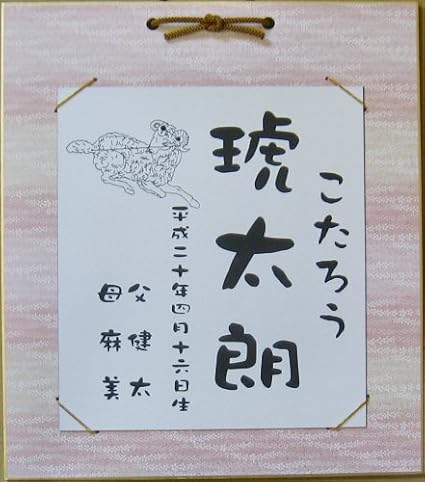 こたろう
琥太朗
平成二十年四月十六日生
父 健太
母 麻美